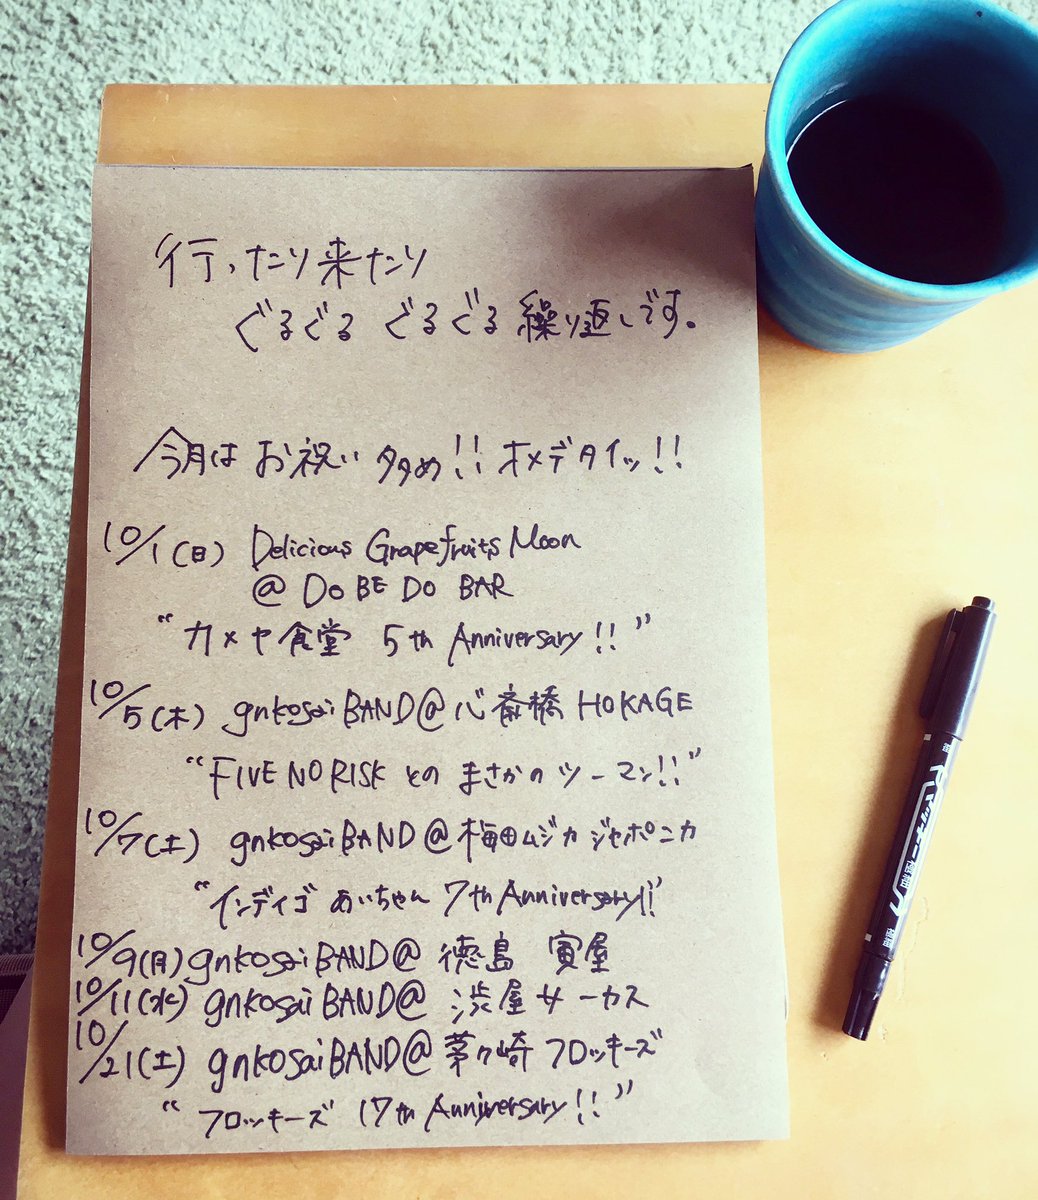 行ったり来たり
ぐるぐる ぐるぐる 繰り返しです。
今月は お祝い 多め!! オメデタイッ!!
10/1(日) Delicious Grapefruits Moon
@ DO BE DO BAR
"カメヤ食堂 5th Anniversary!!"
10/5(木) gnkosai BAND@心斎橋 HOKAGE
"FIVE NO RISK との まさかの ツーマン!!"
10/7(土) gnkosai BAND@梅田ムジカ ジャポニカ
"インディゴ あいちゃん 7th Anniversary!!"
10/9(月) gnkosai BAND@ 徳島 寅屋
10/11(水) gnkosai BAND@ 渋屋 サーカス
10/21(土) gnkosai BAND@ 茅ヶ崎 フロッキーズ
"フロッキーズ 17th Anniversary!!"
マッキー極細
極細